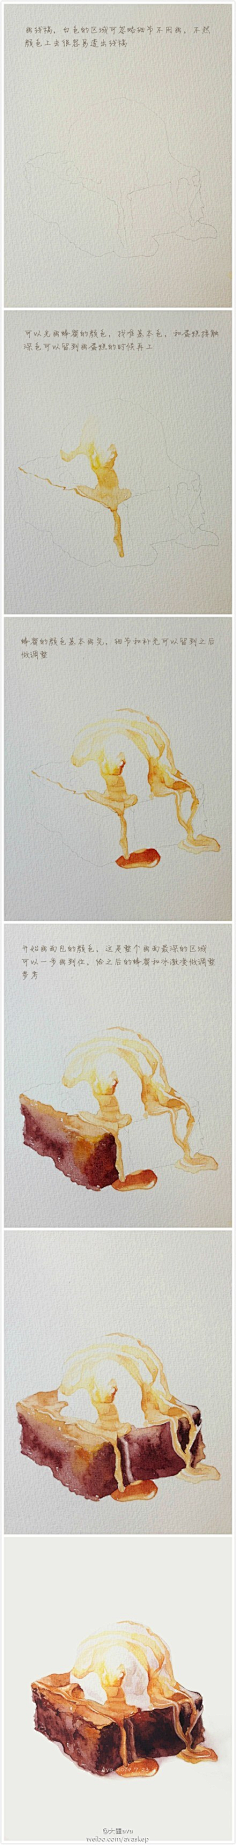 画线稿，白色的区域可忽略细节不用画，不然
颜色上去很容易透出线稿
可以先画蜂蜜的颜色，找准基本色，和蛋糕接触
深色可以留到画蛋糕的时候再上
蜂蜜的颜色基本画完，细节和补充可以留到之后
做调整
开始画面包的颜色，这是整个画面最深的区域
可以一步画到位，给之后的蜂蜜和冰激凌做调整
参考
weibo.com/avaskep